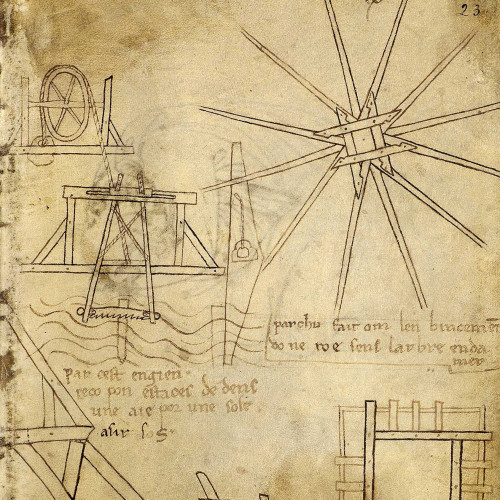 23
par chu fait om len
do ne roe sens lar bre enda
mer
par cest engien
reco pon estaces de dens
une aie por une sole
asir sos